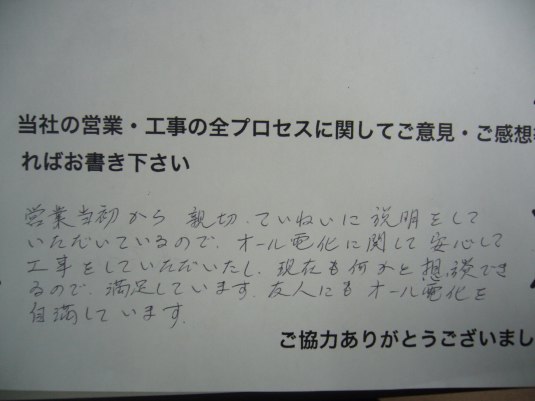 当社の営業・工事の全プロセスに関してご意見・ご感想
ればお書き下さい
営業当初から 親切、ていねいに説明をして
いただいているので、オール電化に関して安心して
工事をしていただいたし、現在も何かと想談でき
るので、満足しています。友人にもオール電化を
自満しています。
ご協力ありがとうございまし